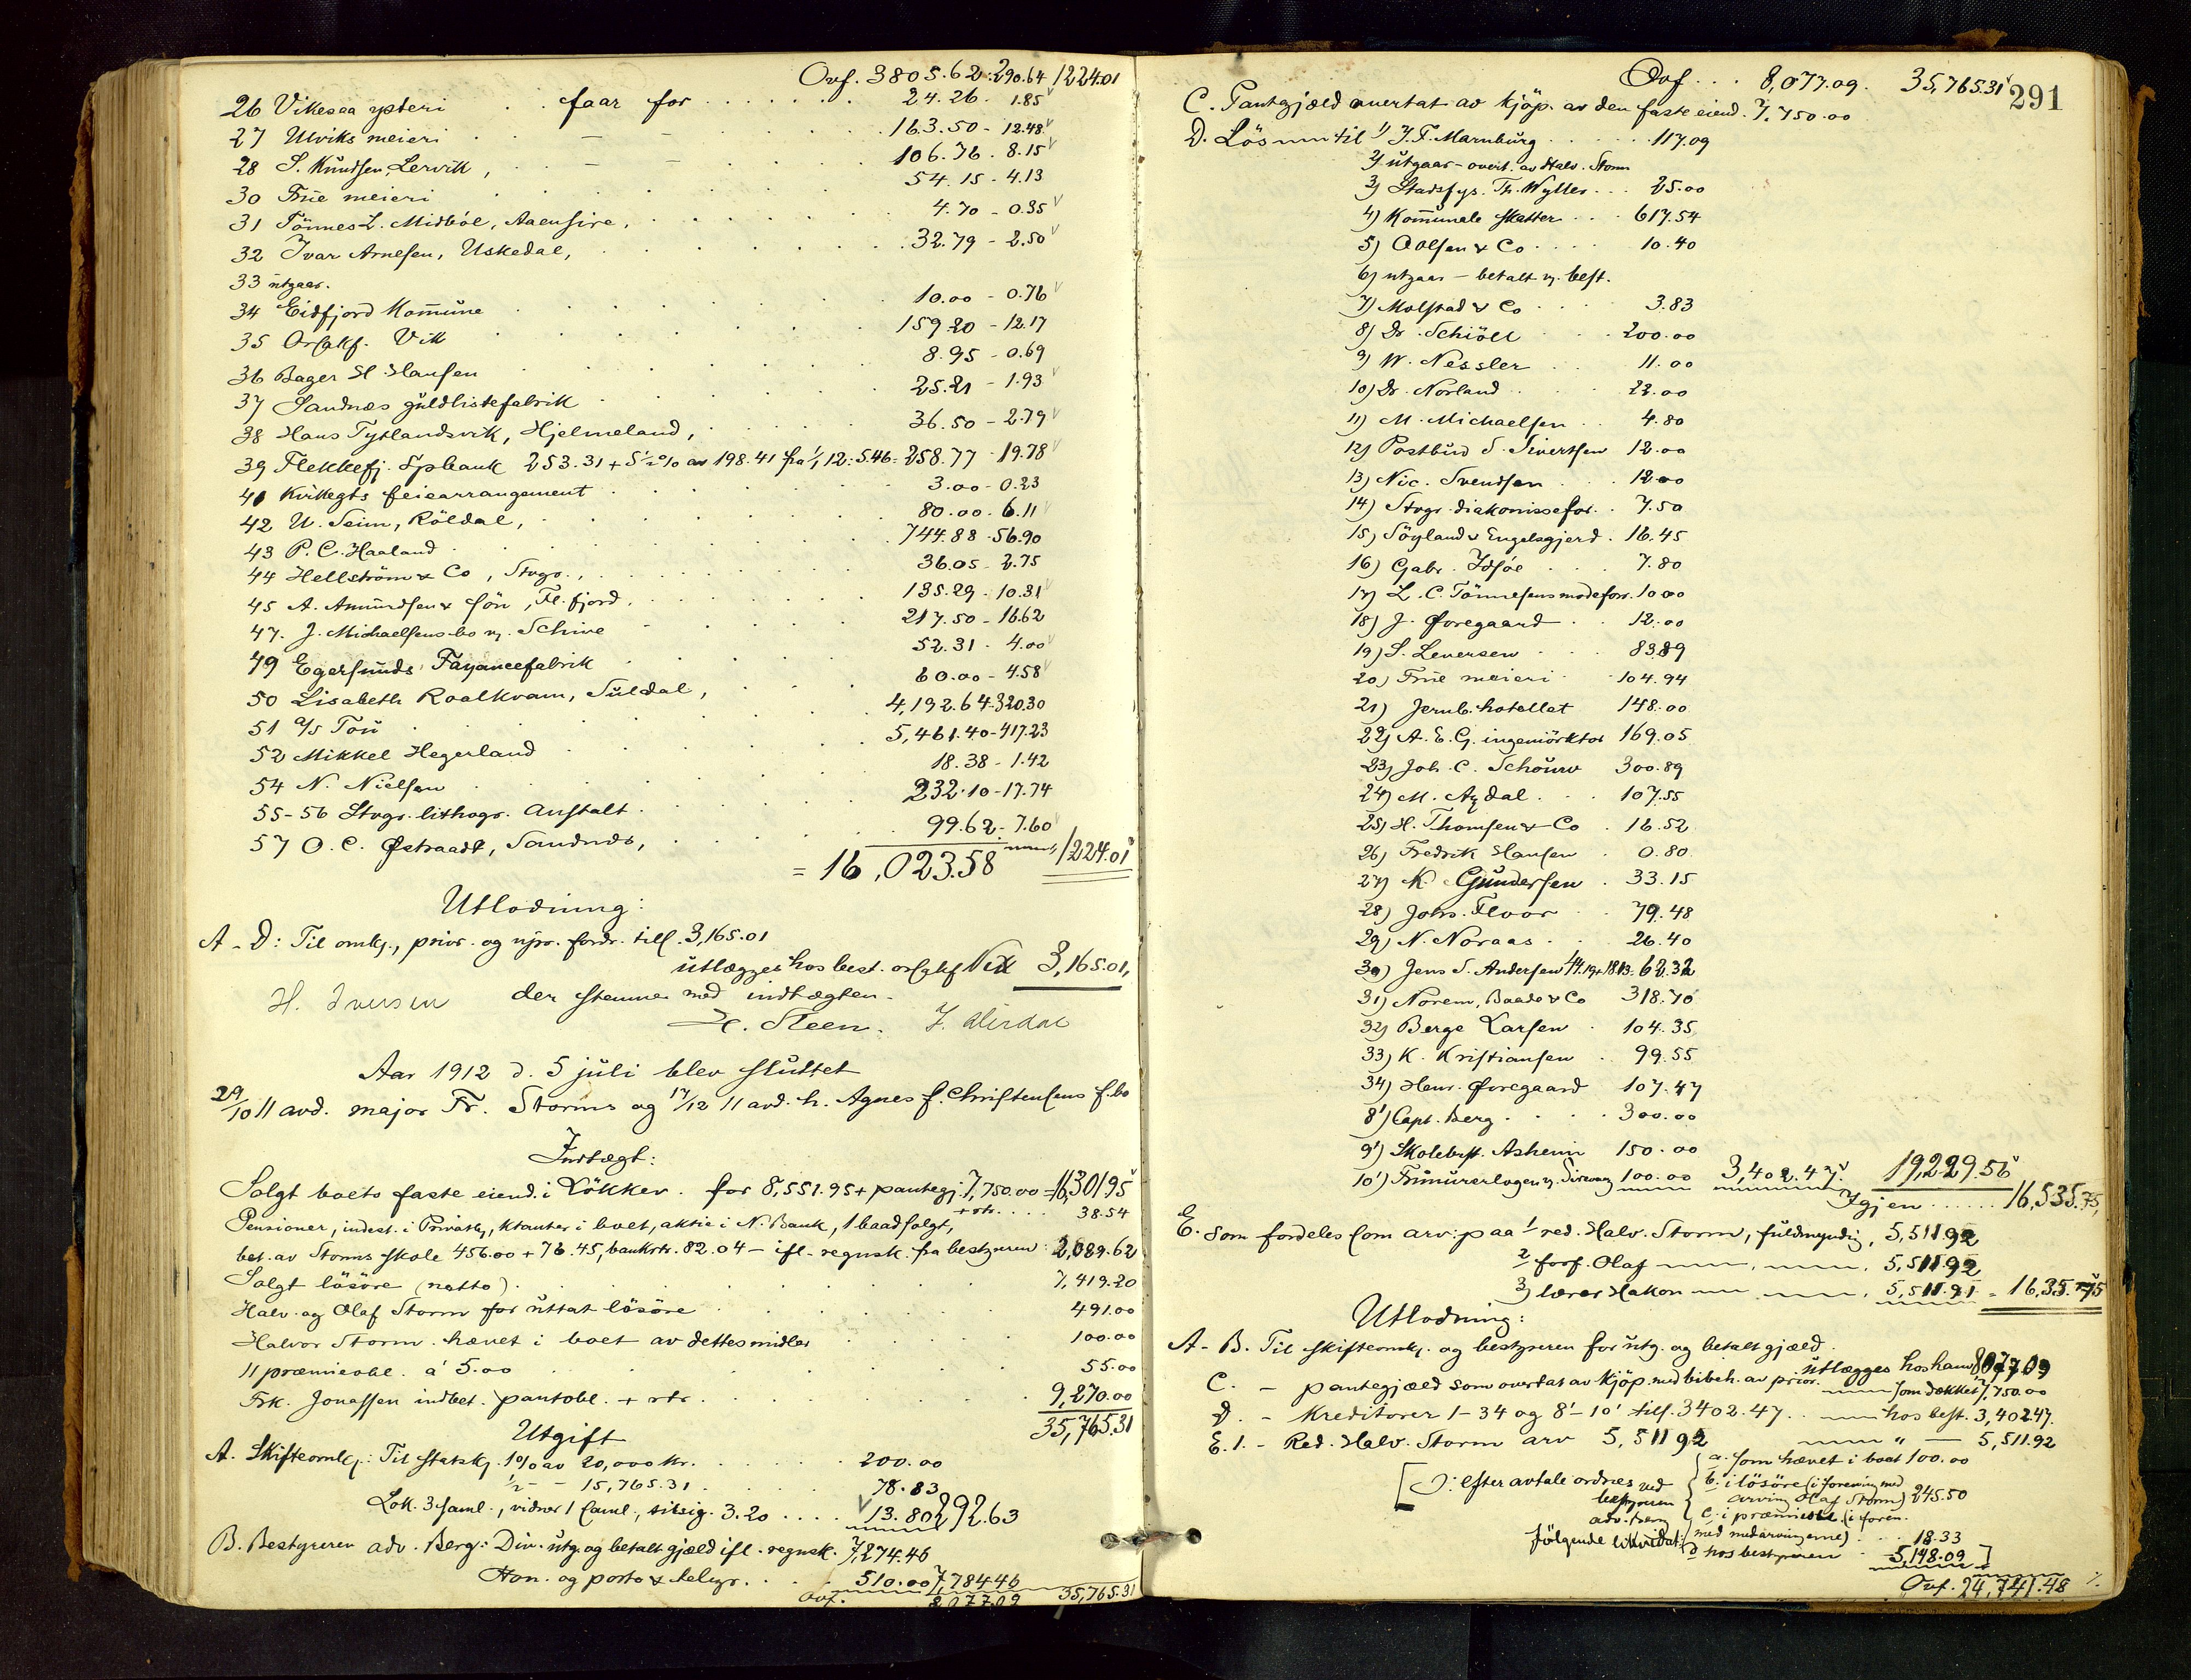 Ovf. 3805.62 : 290.64 1224.01
26 Vikesaa ysteri . . faar for . . . . . . 24.26. 1.85
27 Ulviks meieri . . — . . . . 163.50 - 12.48
28 S. Knudsen, Lervik, . . — — . . . . 106.76 . 8.15
30 Frue meieri . . . . 54.15 - 4.13
31 Tönnes L. Midböe, Aaensire, . . . . 4.70 - 0.35
32 Ivar Arnesen, Uskedal, . . . . 32.79 - 2.50
33 utgaar.
34 Eidfjord Kommune . . . . 10.00 - 0.76
35 Orsakf. Vik . . . . 159.20 - 12.17
36 Bager H. Hansen . . . . 8.95 - 0.69
37 Sandnæs guldlistefabrik . . . . 25.21 - 1.93
38 Hans Tytlandsvik, Hjelmeland, . . . . 36.50 - 2.79
39 Flekkefj. Spbank 253.31 + 5½% av 198.41 fra 1/1 12: 5.46 = 258.77 - 19.78
41 Kirkegts feiearrangement . . . . 3.00 - 0.23
42 U. Seim, Röldal, . . . . 80.00 . 6.11
43 P. C. Haaland . . . . 744.88 - 56.90
44 Hellström & Co, Stvgr., . . . . 36.05 - 2.75
45 A. Amundsen & sön, Fl.fjord, . . . . 135.29 . 10.31
47. J. Michaelsens bo v. Schive . . . . 217.50 - 16.62
49 Egersunds Fayancefabrik . . . . 52.31 . 4.00
50 Lisabeth Roalkvam, Suldal, . . . . 60.00 - 4.58
51 a/s Tou . . . . 4,192.64 - 320.30
52 Mikkel Hegerland . . . . 5,461.40 - 417.23
54 N. Nielsen . . . . 18.38 - 1.42
55-56 Stvgr. lithogr. Anstalt . . . . 232.10 - 17.74
57 O. C. Østraadt, Sandnæs, . . . . 99.62 - 7.60
= 16,023.58 1224.01
Utlodning:
A - D: Til omkj., prior. og upr. fordr. tils. 3,165.01
utlægges hos best. Vik 3,165.01,
der stemmer med indtægten.
H. Iversen H. Steen.
Aar 1912 d. 5 juli blev sluttet
29/10 11 avd. major Fr. Storms og 17/12 11 avd. h. Agnes f. Christensens f.bo
Indtægt:
Solgt boets faste eiend. i Lökkev. for 8,551.95 + pantegj. 7,750.00 = 16,301.95
+ rtr. . . . . 38.54
Pensioner, indest. i Privatb., Ktanter i boet, aktie i N. Bank, 1 baad solgt,
bet. av Storms skole 456.00 + 76.45, bankrtr. 82.04 — ifl. regnsk. fra bestyreren: 2,089.62
Solgt lösöre (netto) . . . . 7,419.20
Halv. og Olaf Storm for uttat lösöre . . . . 491.00
Halvor Storm hævet i boet av dettes midler . . . . 100.00
11 præmieobl. a' 5.00 . . . . 55.00
Frk. Jonassen indbet. pantobl. + rtr. . . . . 9,270.00
35,765.31
Utgift
A. Skifteomk.: Til statsk. 1% av 20,000 kr. . . . . 200.00
½ - - 15,765.31 . . . . 78.83
Lok. 3 saml., vidner 1 saml., tilsig. 3.20 . . . . 13.80 292.63
B. Bestyreren adv. Berg: Div. utg. og betalt gjæld ifl. regnsk. 7,274.46
Hon. og porto & telegr. . . . 510.00 7,784.46
Ovf. 8,077.09 35,765.31
Ovf . . . 8,077.09. 35,765.31 291
C. Pantgjæld overtat av kjöp. av den faste eiend. 7,750.00
D. Lösnm til 1) J. F. Marnburg . . . . 117.09
2) utgaar - overt. av Halv. Storm
3) Stadsfys. Th. Wyller . . . 25.00
4) Kommunale skatter . . . 617.54
5) O. Olsen & Co . . . . 10.40
6) utgaar — betalt v. best.
7) Molstad & Co . . . 3.83
8) Dr. Schiöll . . . 200.00
9) W. Nessler . . 11.00
10) Dr. Norland . . 22.00
11) M. Michaelsen . . 4.80
12) Postbud S. Sivertsen 12.00
13) Nic. Svendsen . . . 12.00
14) Stvgr. diakonissefor. . 7.50
15) Söyland & Engelsgjerd . 16.45
16) Gabr. Idsöe . . . 7.80
17) L. C. Tönnesens modeforr. 10.00
18) J. Øvregaard . . 12.00
19) S. Leversen . . . 83.89
20) Frue meieri . . 104.94
21) Jernb. hotellet 148.00
22) A. E. G. ingeniörktor 169.05
23) Joh. C. Schouw 300.89
24) M. Aydal . . . 107.55
25) H. Thomsen & Co . 16.52
26) Fredrik Hansen . 0.80
27) K. Gundersen . 33.15
28) Johs. Floor . . 79.48
29) N. Noraas . . 26.40
30) Jens S. Andersen 44.19 + 18.13 = 62.32
31) Norem, Baade & Co 318.70
32) Berge Larsen . 104.35
33) K. Kristiansen . 99.55
34) Henr. Øvregaard 107.47
8') Capt. Berg . . . . 300.00
9') Skolebest. Asheim 150.00
10') Frimurerlogen v. 100.00 3,402.47 19,229.56
Igjen . . . . . 16,535.75,
E. Som fordeles som arv: paa 1) red. Halv. Storm, fuldmyndig, 5,511.92
2) forf. Olaf — , — , 5,511.92
3) lærer Hakon — — , 5,511.91 = 16,535.75
Utlodning:
A - B. Til skifteomkj. og bestyreren for utg. og betalt gjæld
utlægges hos ham 8,077.09
C. - pantegjæld som overtat av kjöp. med bibeh. av prior. — som dækket 7,750.00
D. - Kreditorer 1-34 og 8'-10' tils. 3402.47 . . — hos best. 3,402.47.
E. 1. - Red. Halv. Storm arv 5,511.92 — " — 5,511.92
[ɔ: efter avtale ordnes ved
bestyreren
adv. Berg
følgende likvidat:
a. som hævet i boet 100.00
b. i lösöre (i forening med
arving Olaf Storm) 245.50
c. i præmieobl. (i foren.
med medarvingerne) . . 18.33
d hos bestyreren . 5,148.09 ]
Ovf. 24,741.48 ./.